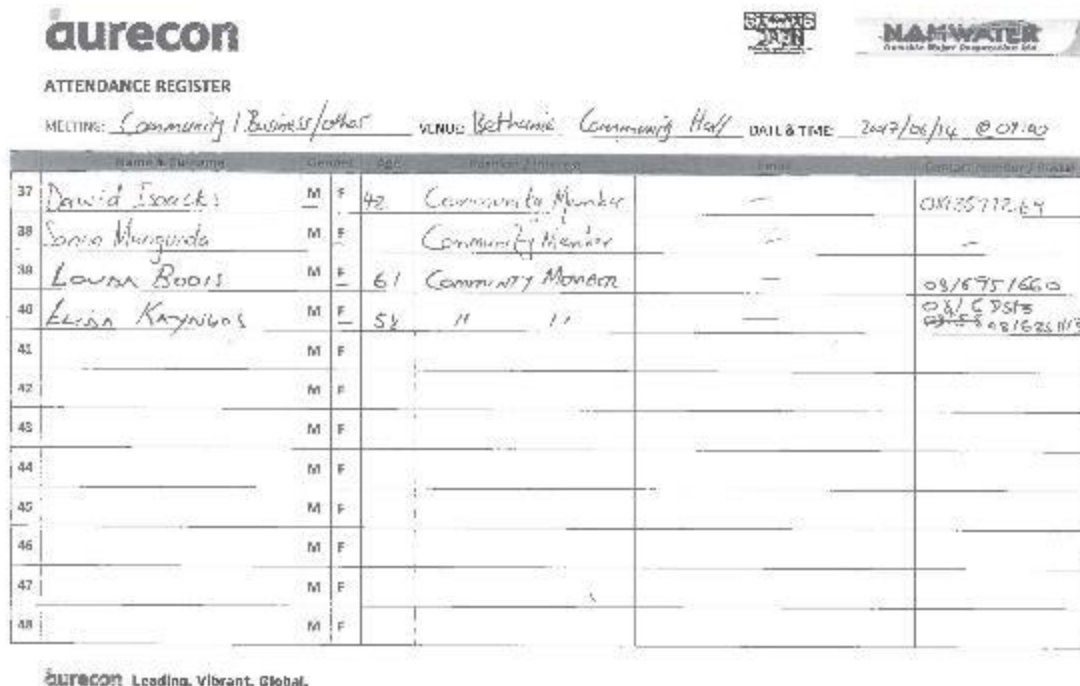 aurecon
NAMWATER
Namibia Water Corporation Ltd
ATTENDANCE REGISTER
MEETING: Community / Business/other VENUE: Bethanie Community Hall DATE & TIME 2017/06/14 @ 09:00
Name & Surname Gender Age Position / Interest Email Contact number / Postal
37 Dawid Isaacks M F 42 Community Member —
38 Sonia M F Community Member — —
39 Louisa Boois M F 61 Community Member — 0816951660
40 Elisa M F 58 " " —
41 M F
42 M F
43 M F
44 M F
45 M F
46 M F
47 M F
48 M F
aurecon Leading. Vibrant. Global.